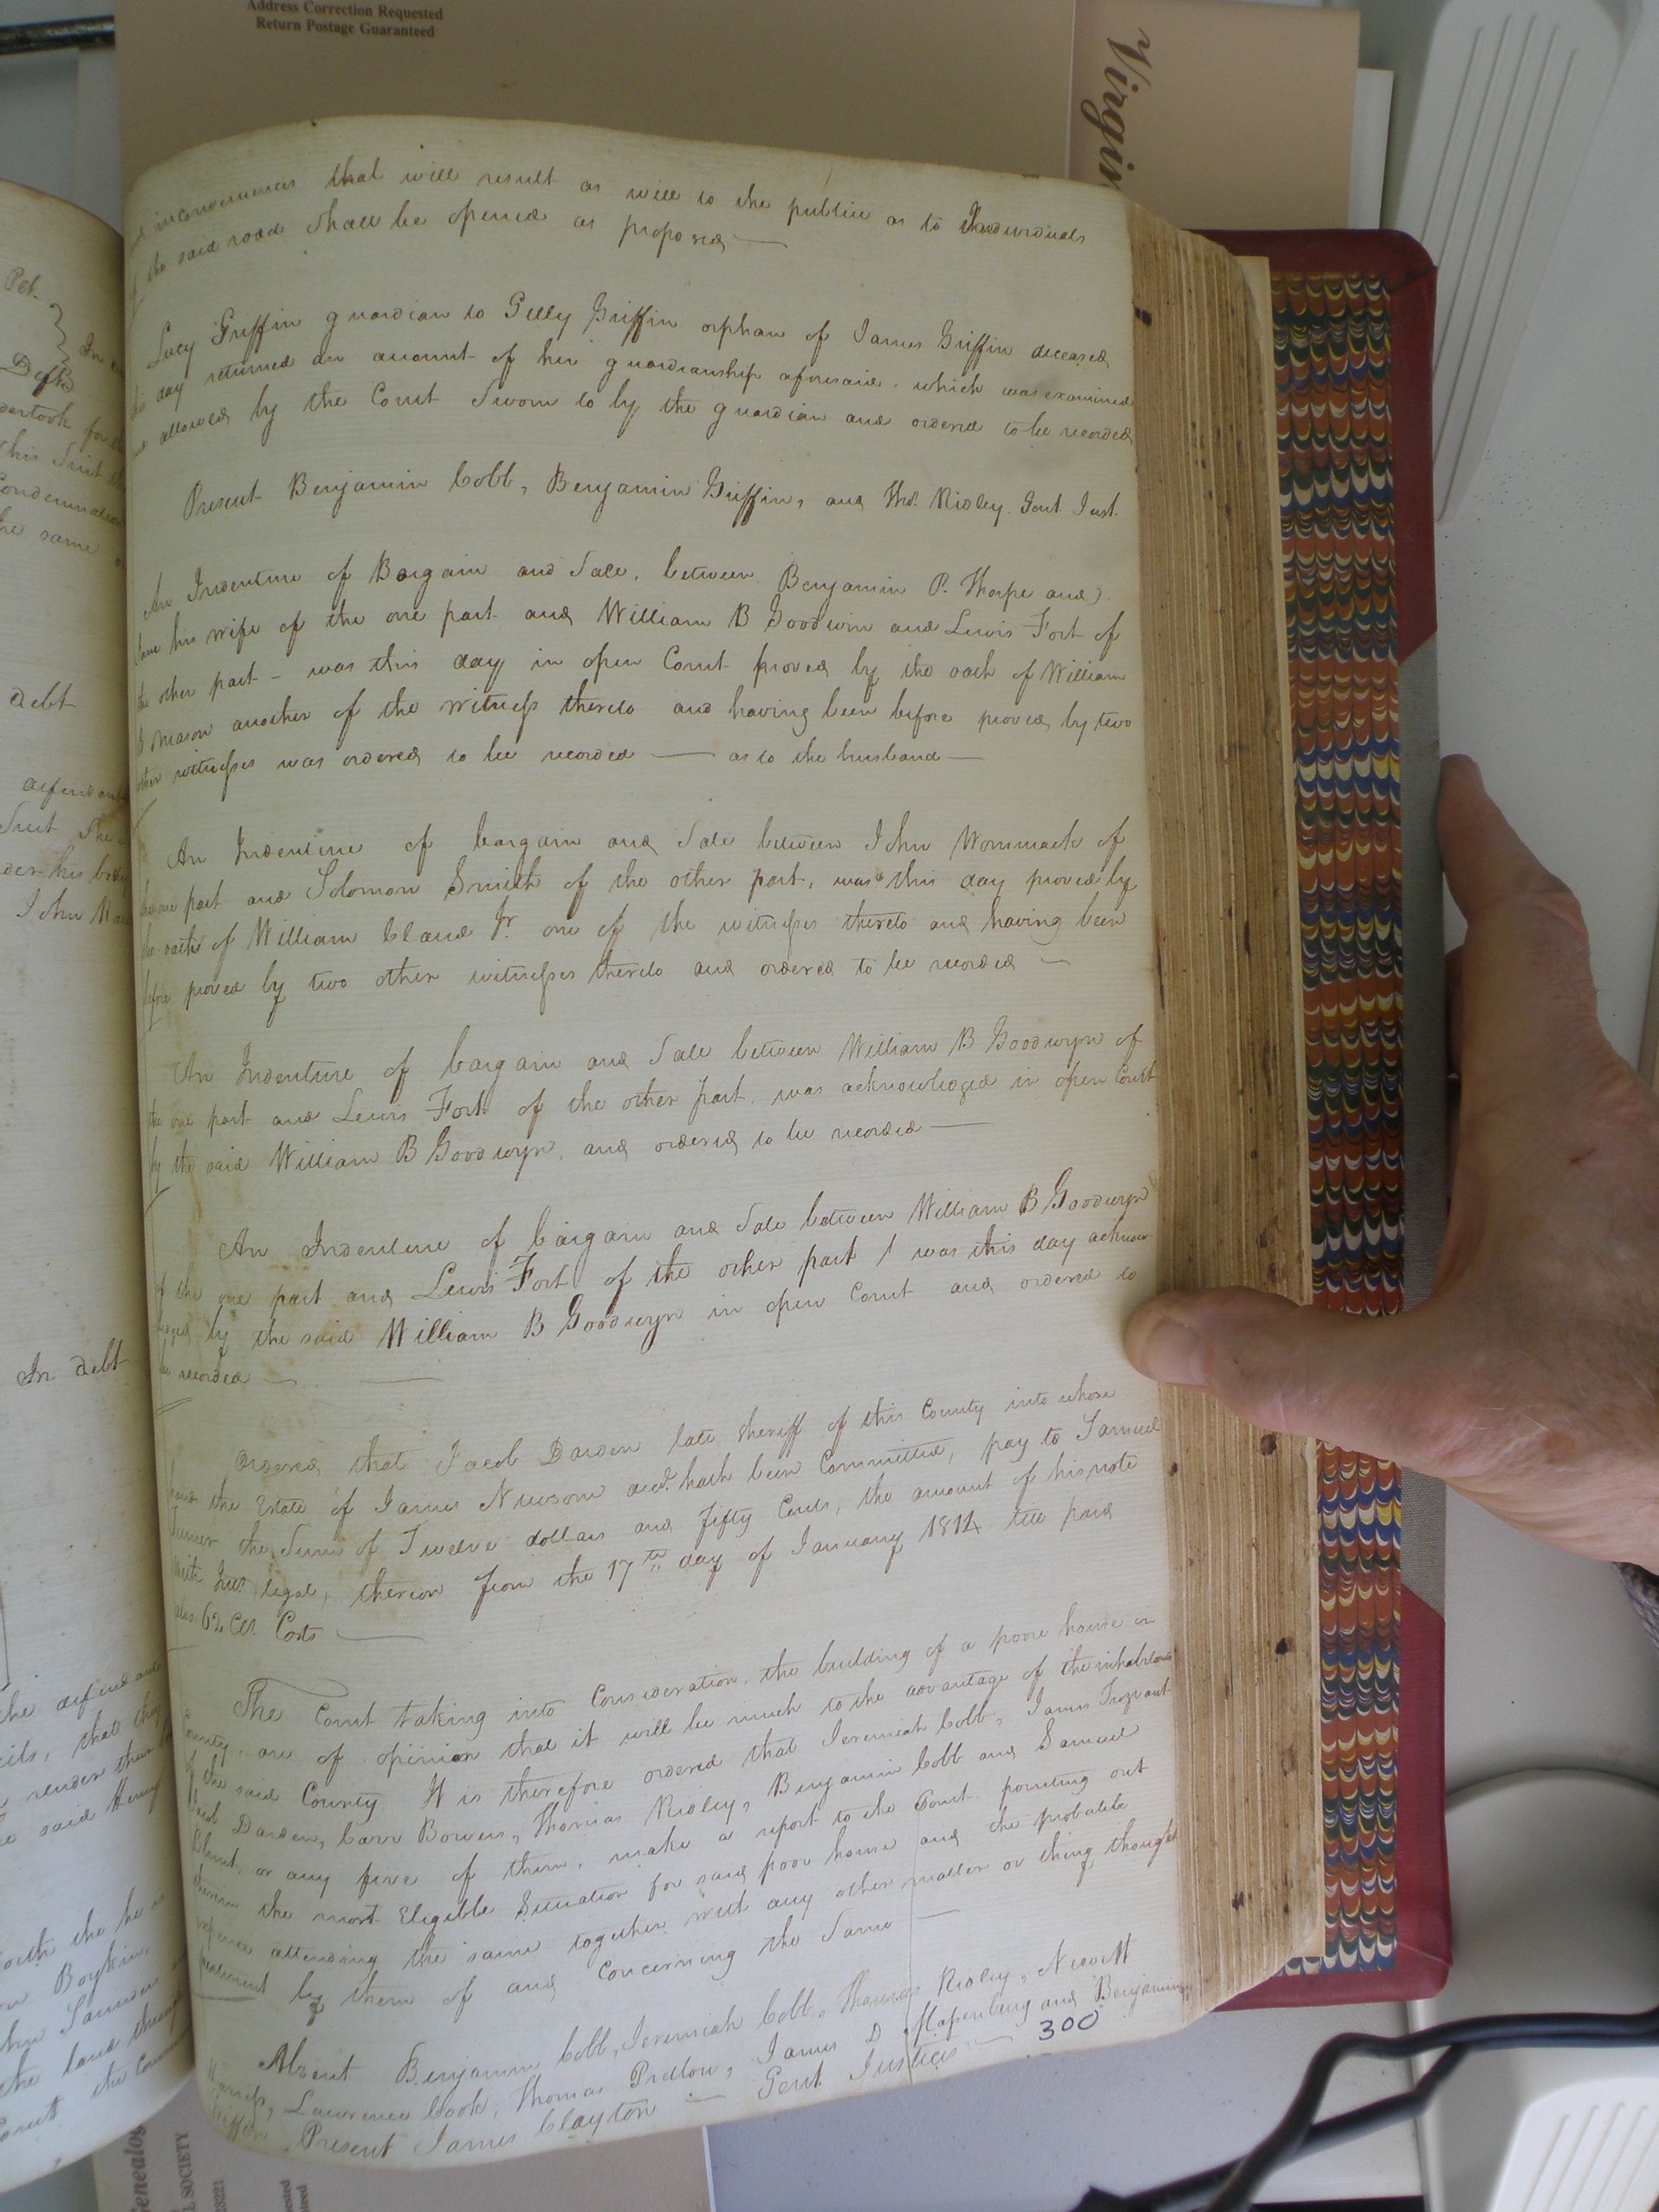 Address Correction Requested
Return Postage Guaranteed
Virgin
inconveniences that will result as will to the public as to Individuals
if the said road shall be opened as proposed —
Lucy Griffin guardian to Gilly Griffin orphan of James Griffin deceased
this day returned an amount of her guardianship aforesaid, which was examined
and allowed by the Court Sworn to by the guardian and ordered to be recorded
Present Benjamin Cobb, Benjamin Griffin, and Thos. Ridley Gent Just.
An Indenture of Bargain and Sale, between Benjamin P. Thorpe and
his wife of the one part and William B Goodwin and Lewis Fort of
the other part – was this day in open Court proved by the oath of William
B Mason another of the witness thereto and having been before proved by two
other witnesses was ordered to be recorded — as to the husband —
An Indenture of bargain and Sale between John Wommack of
the one part and Solomon Smith of the other part, was this day proved by
the oath of William Claud Jr. one of the witnesses thereto and having been
before proved by two other witnesses thereto and ordered to be recorded —
An Indenture of bargain and Sale between William B Goodwyn of
the one part and Lewis Fort of the other part, was acknowledged in open Court
by the said William B Goodwyn, and ordered to be recorded —
An Indenture of bargain and Sale between William B Goodwyn
of the one part and Lewis Fort of the other part / was this day acknow
ledged by the said William B Goodwyn in open Court and ordered to
be recorded —
Ordered that Jacob Darden late Sheriff of this County into whose
hands the Estate of James Newsom decd. hath been Committed, pay to Samuel
Turner the Sum of Twelve dollars and fifty Cents, the amount of his note
with legal, thereon from the 17th day of January 1814 till paid
also 62 Cts Costs —
The Court taking into Consideration, the building of a poore house in
County, are of opinion that it will be much to the advantage of the inhabitants
of the said County It is therefore ordered that Jeremiah Cobb, James Trezvant
Jacob Darden, Carr Bowers, Thomas Ridley, Benjamin Cobb and Samuel
Blunt, or any five of them, make a report to the Court pointing out
therein the most Eligible Situation for said poor house and the probable
expence attending the same together with any other matter or thing thought
pertinent by them of and Concerning the Same —
Absent Benjamin Cobb, Jeremiah Cobb, Thomas Ridley, Newitt
Harris, Lawrence Cook, Thomas Pretlow, James D Massenburg and Benjamin
Griffin Present James Clayton — Gent Justices —
300
Pet.
Defts
debt
defendant
In debt
the defendant
that they
said Henry
Boykin
Genealog
L SOCIETY
23221